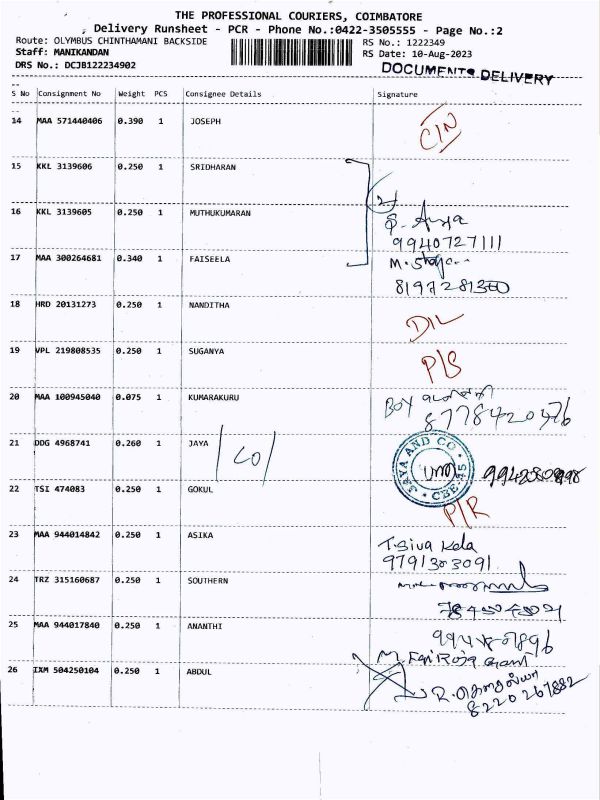 THE PROFESSIONAL COURIERS, COIMBATORE
Delivery Runsheet - PCR - Phone No.:0422-3505555 - Page No.:2
Route: OLYMBUS CHINTHAMANI BACKSIDE RS No.: 1222349
Staff: MANIKANDAN RS Date: 10-Aug-2023
DRS No.: DCJB122234902 DOCUMENTS DELIVERY
S No Consignment No Weight PCS Consignee Details Signature
14 MAA 571440406 0.390 1 JOSEPH
C/N
15 KKL 3139606 0.250 1 SRIDHARAN
2
16 KKL 3139605 0.250 1 MUTHUKUMARAN
9940727111
17 MAA 300264681 0.340 1 FAISEELA
18 HRD 20131273 0.250 1 NANDITHA
D/L
19 VPL 219808535 0.250 1 SUGANYA
P/S
20 MAA 100945040 0.075 1 KUMARAKURU
BOY
8778420476
21 DDG 4968741 0.260 1 JAYA
CO
JAYA AND CO CBE-45
22 TSI 474083 0.250 1 GOKUL
P/R
23 MAA 944014842 0.250 1 ASIKA
T.Siva Kala
9791303091
24 TRZ 315160687 0.250 1 SOUTHERN
25 MAA 944017840 0.250 1 ANANTHI
26 IXM 504250104 0.250 1 ABDUL
8220267882